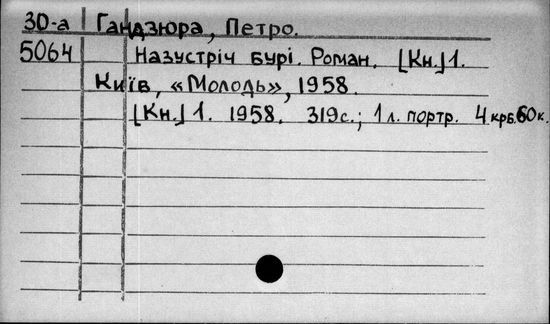 30-а Гандзюра, Петро.
5064 Назустріч бурі. Роман. [Кн.]1.
Київ, «Молодь», 1958.
[Кн.] 1. 1958. 319с.; 1 л. портр. 4 крб. 60 к.